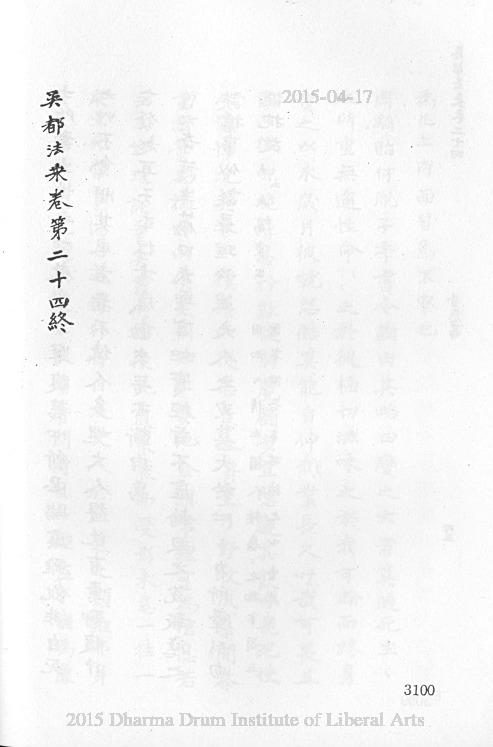 吳都法乘卷第二十四終
2015-04-17
3100
2015 Dharma Drum Institute of Liberal Arts